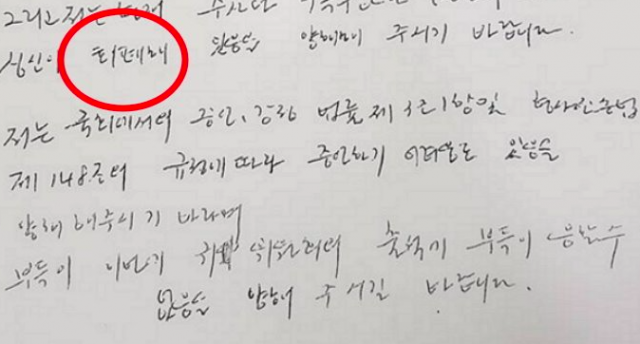 그리고 저는
심신이 피폐해 있음 양해해 주시기 바랍니다.
저는 국회에서의 증언, 감정 법률 제3조1항 및 형사소송법
제148조의 규정에 따라 증언하기 어려움도 있음을
양해해주시기 바라며
부득이 이번 귀 위원회의 출석이 부득이 응할 수
없음을 양해해 주시길 바랍니다.